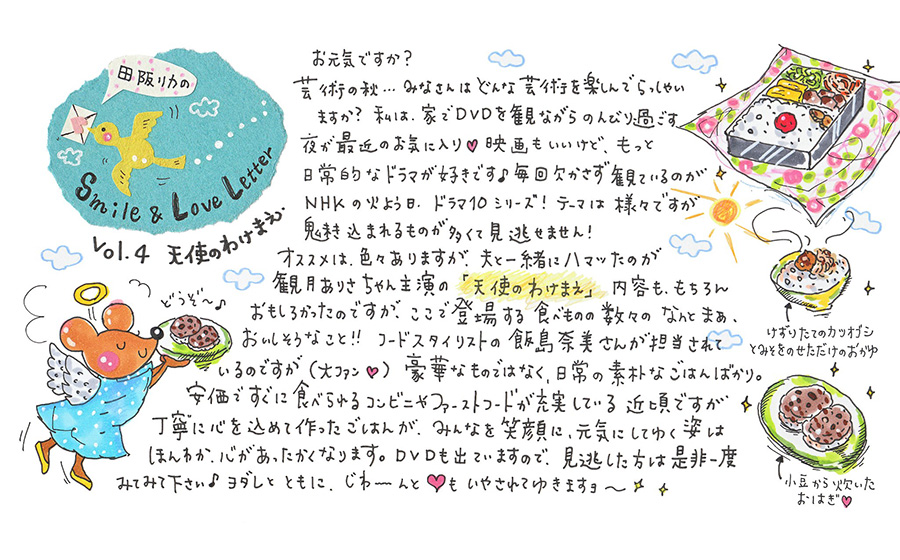 田阪リカの
Smile & Love Letter
Vol.4 天使のわけまえ
お元気ですか?
芸術の秋…みなさんはどんな芸術を楽しんでらっしゃい
ますか?私は、家でDVDを観ながらのんびり過ごす
夜が最近のお気に入り♥映画もいいけど、もっと
日常的なドラマが好きです♪毎回欠かさず観ているのが
NHKの火よう日、ドラマ10シリーズ!テーマは様々ですが
惹き込まれるものが多くて見逃せません!
オススメは、色々ありますが、夫と一緒にハマッたのが
観月ありさちゃん主演の「天使のわけまえ」内容も、もちろん
おもしろかったのですが、ここで登場する食べものの数々のなんとまぁ、
おいしそうなこと!!フードスタイリストの飯島奈美さんが担当されて
いるのですが(大ファン♥)豪華なものではなく、日常の素朴なごはんばかり。
安価ですぐに食べられるコンビニやファーストフードが充実している近頃ですが
丁寧に心を込めて作ったごはんが、みんなを笑顔に、元気にしてゆく姿は
ほんわか、心があったかくなります。DVDも出ていますので、見逃した方は是非一度
みてみて下さい♪ヨダレとともに、じわ〜んと♥もいやされてゆきますョ〜
どうぞ〜♪
けずりたてのカツオブシ
とみそをのせただけのおかゆ
小豆から炊いた
おはぎ♥